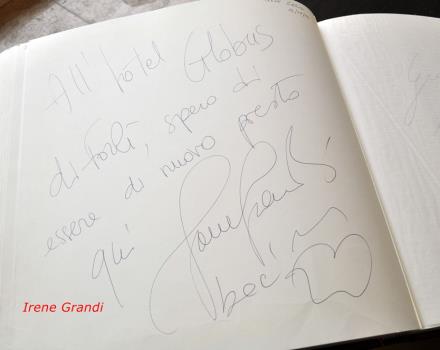 All'hotel Globus
di Forlì, spero di
essere di nuovo presto
qui Irene Grandi
bacim
Irene Grandi